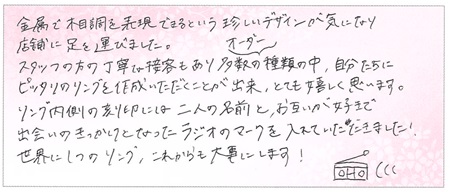 金属で木目調を表現できるという珍しいデザインが気になり
店舗に足を運びました。
オーダー
スタッフの方の丁寧な接客もあり多数の種類の中、自分たちに
ピッタリのリングを作成いただくことが出来、とても嬉しく思います。
リング内側の刻印には二人の名前と、お互いが好きで
出会いのきっかけとなったラジオのマークを入れていただきました!
世界に1つのリング、これからも大事にします!
OHO